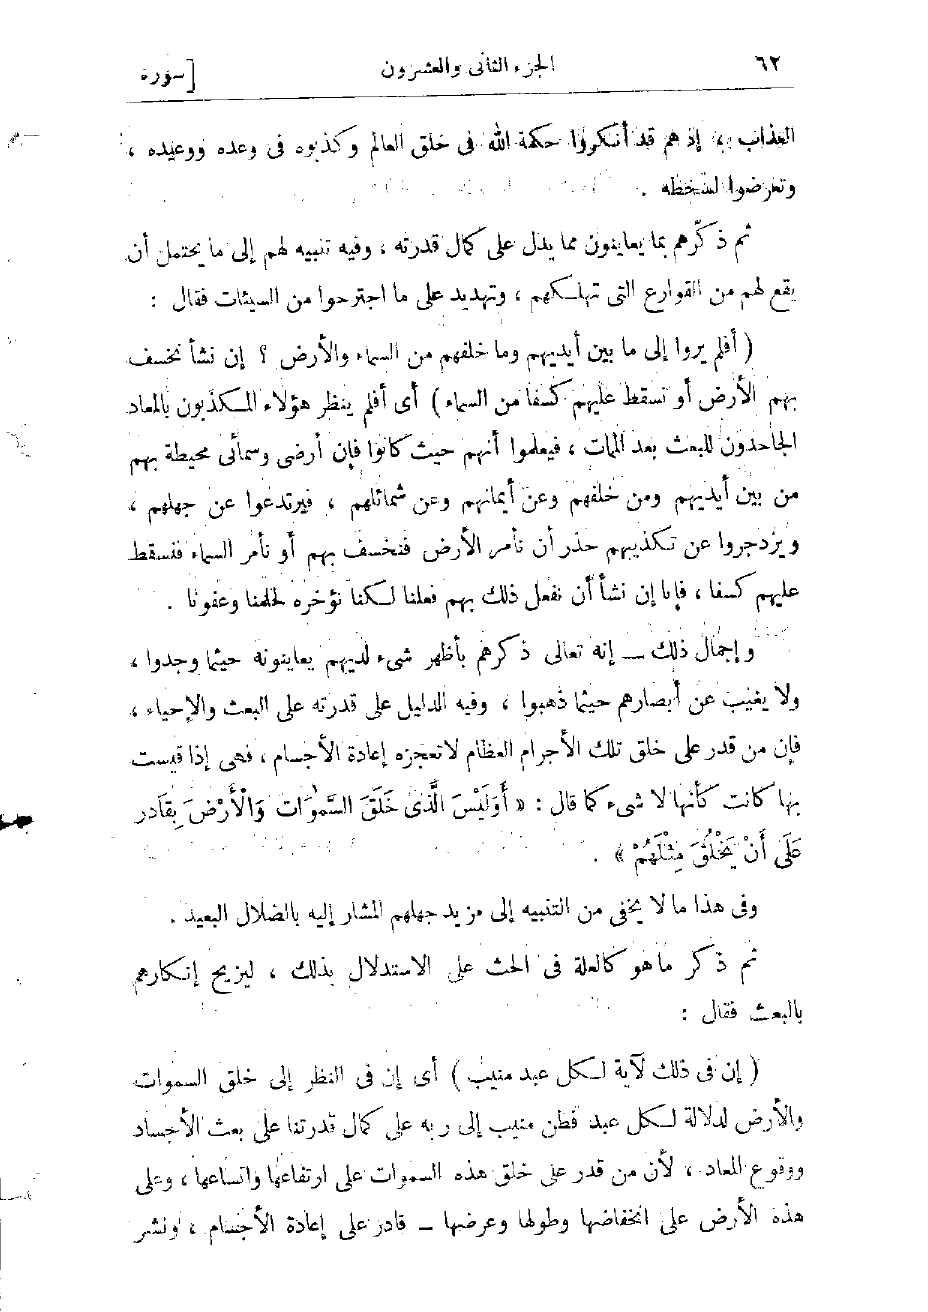 ٦٢ الجزء الثانى والعشرون [سورة
العذاب ، إذ هم قد أنكروا حكمة الله فى خلق العالم وكذبوه فى وعده ووعيده ،
وتعرضوا لسخطه .
ثم ذكّرهم بما يعاينون مما يدل على كمال قدرته ، وفيه تنبيه لهم إلى ما يحتمل أن
يقع لهم من القوارع التى تهلكهم ، وتهديد على ما اجترحوا من السيئات فقال :
( أفلم يروا إلى ما بين أيديهم وما خلفهم من السماء والأرض ؟ إن نشأ نخسف
بهم الأرض أو نسقط عليهم كسفا من السماء ) أى أفلم ينظر هؤلاء المكذبون بالمعاد
الجاحدون للبعث بعد الممات ، فيعلموا أنهم حيث كانوا فإن أرضى وسمائى محيطة بهم
من بين أيديهم ومن خلفهم وعن أيمانهم وعن شمائلهم ، فيرتدعوا عن جهلهم ،
ويزدجروا عن تكذيبهم حذر أن نأمر الأرض فنخسف بهم أو نأمر السماء فنسقط
عليهم كسفا ، فإنا إن نشأ أن نفعل ذلك بهم فعلنا لكنا نؤخره لحلمنا وعفونا .
وإجمال ذلك — إنه تعالى ذكرهم بأظهر شىء لديهم يعاينونه حيثما وجدوا ،
ولا يغيب عن أبصارهم حيثما ذهبوا ، وفيه الدليل على قدرته على البعث والإحياء ،
فإن من قدر على خلق تلك الأجرام العظام لا تعجزه إعادة الأجسام ، فهى إذا قيست
بها كانت كأنها لا شىء كما قال : « أَوَلَيْسَ الَّذِى خَلَقَ السَّمٰوَاتِ وَالْأَرْضَ بِقَادِرٍ
عَلَى أَنْ يَخْلُقَ مِثْلَهُمْ » .
وفى هذا ما لا يخفى من التنبيه إلى مزيد جهلهم المشار إليه بالضلال البعيد .
ثم ذكر ما هو كالعلة فى الحث على الاستدلال بذلك ، ليزيح إنكارهم
بالبعث فقال :
( إن فى ذلك لآية لكل عبد منيب ) أى إن فى النظر إلى خلق السموات
والأرض لدلالة لكل عبد فطن منيب إلى ربه على كمال قدرتنا على بعث الأجساد
ووقوع المعاد ، لأن من قدر على خلق هذه السموات على ارتفاعها واتساعها ، وعلى
هذه الأرض على انخفاضها وطولها وعرضها — قادر على إعادة الأجسام ، ونشر